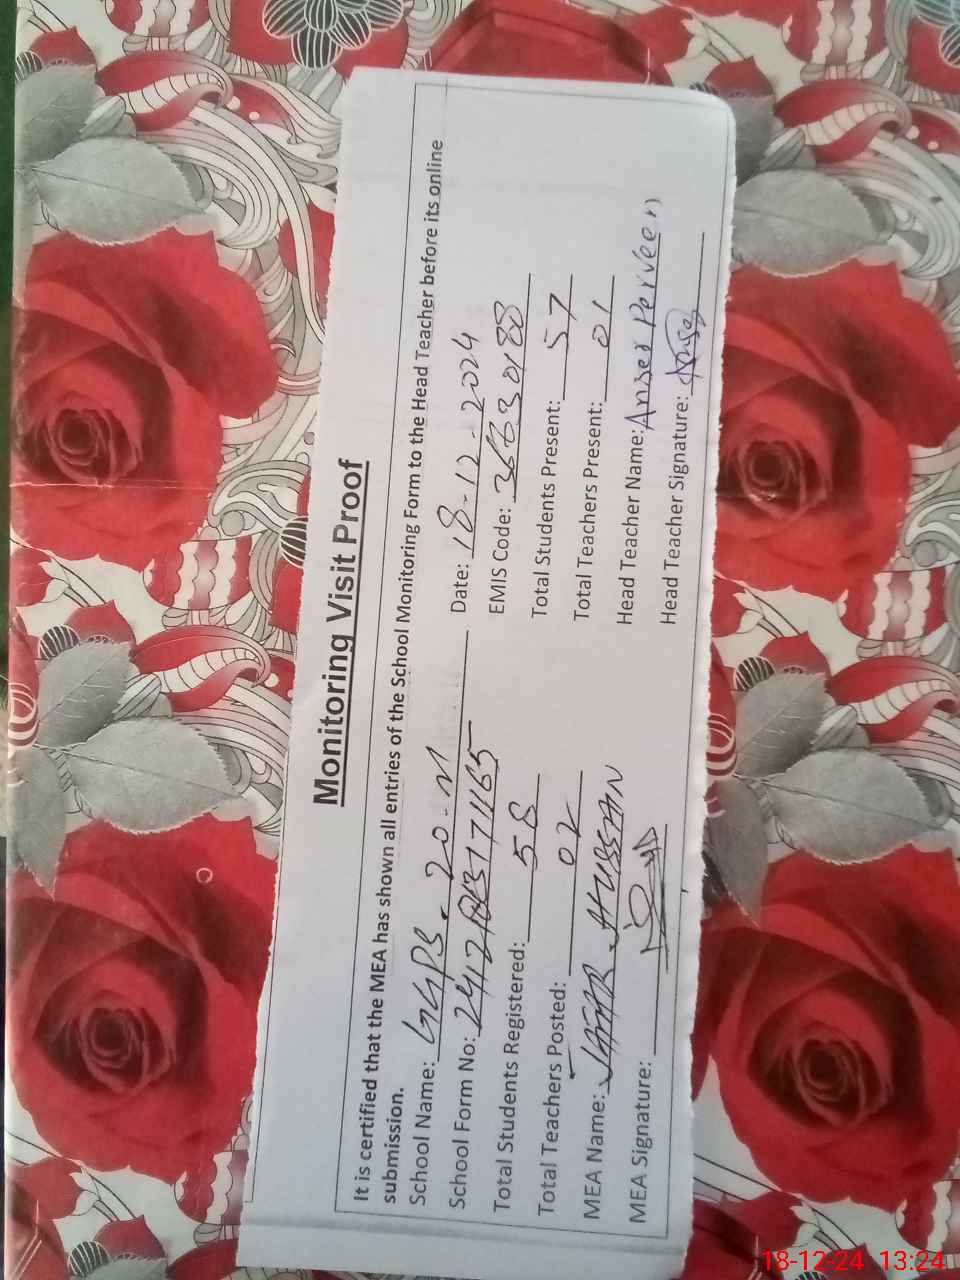 Monitoring Visit Proof
It is certified that the MEA has shown all entries of the School Monitoring Form to the Head Teacher before its online
submission.
School Name: GGPS. 20-M Date: 18-12-2024
School Form No: EMIS Code:
Total Students Registered: 58 Total Students Present: 57
Total Teachers Posted: 02 Total Teachers Present: 01
MEA Name: JAFAR HUSSAIN Head Teacher Name: Anser Perveen
MEA Signature: Head Teacher Signature:
18-12-24 13:24